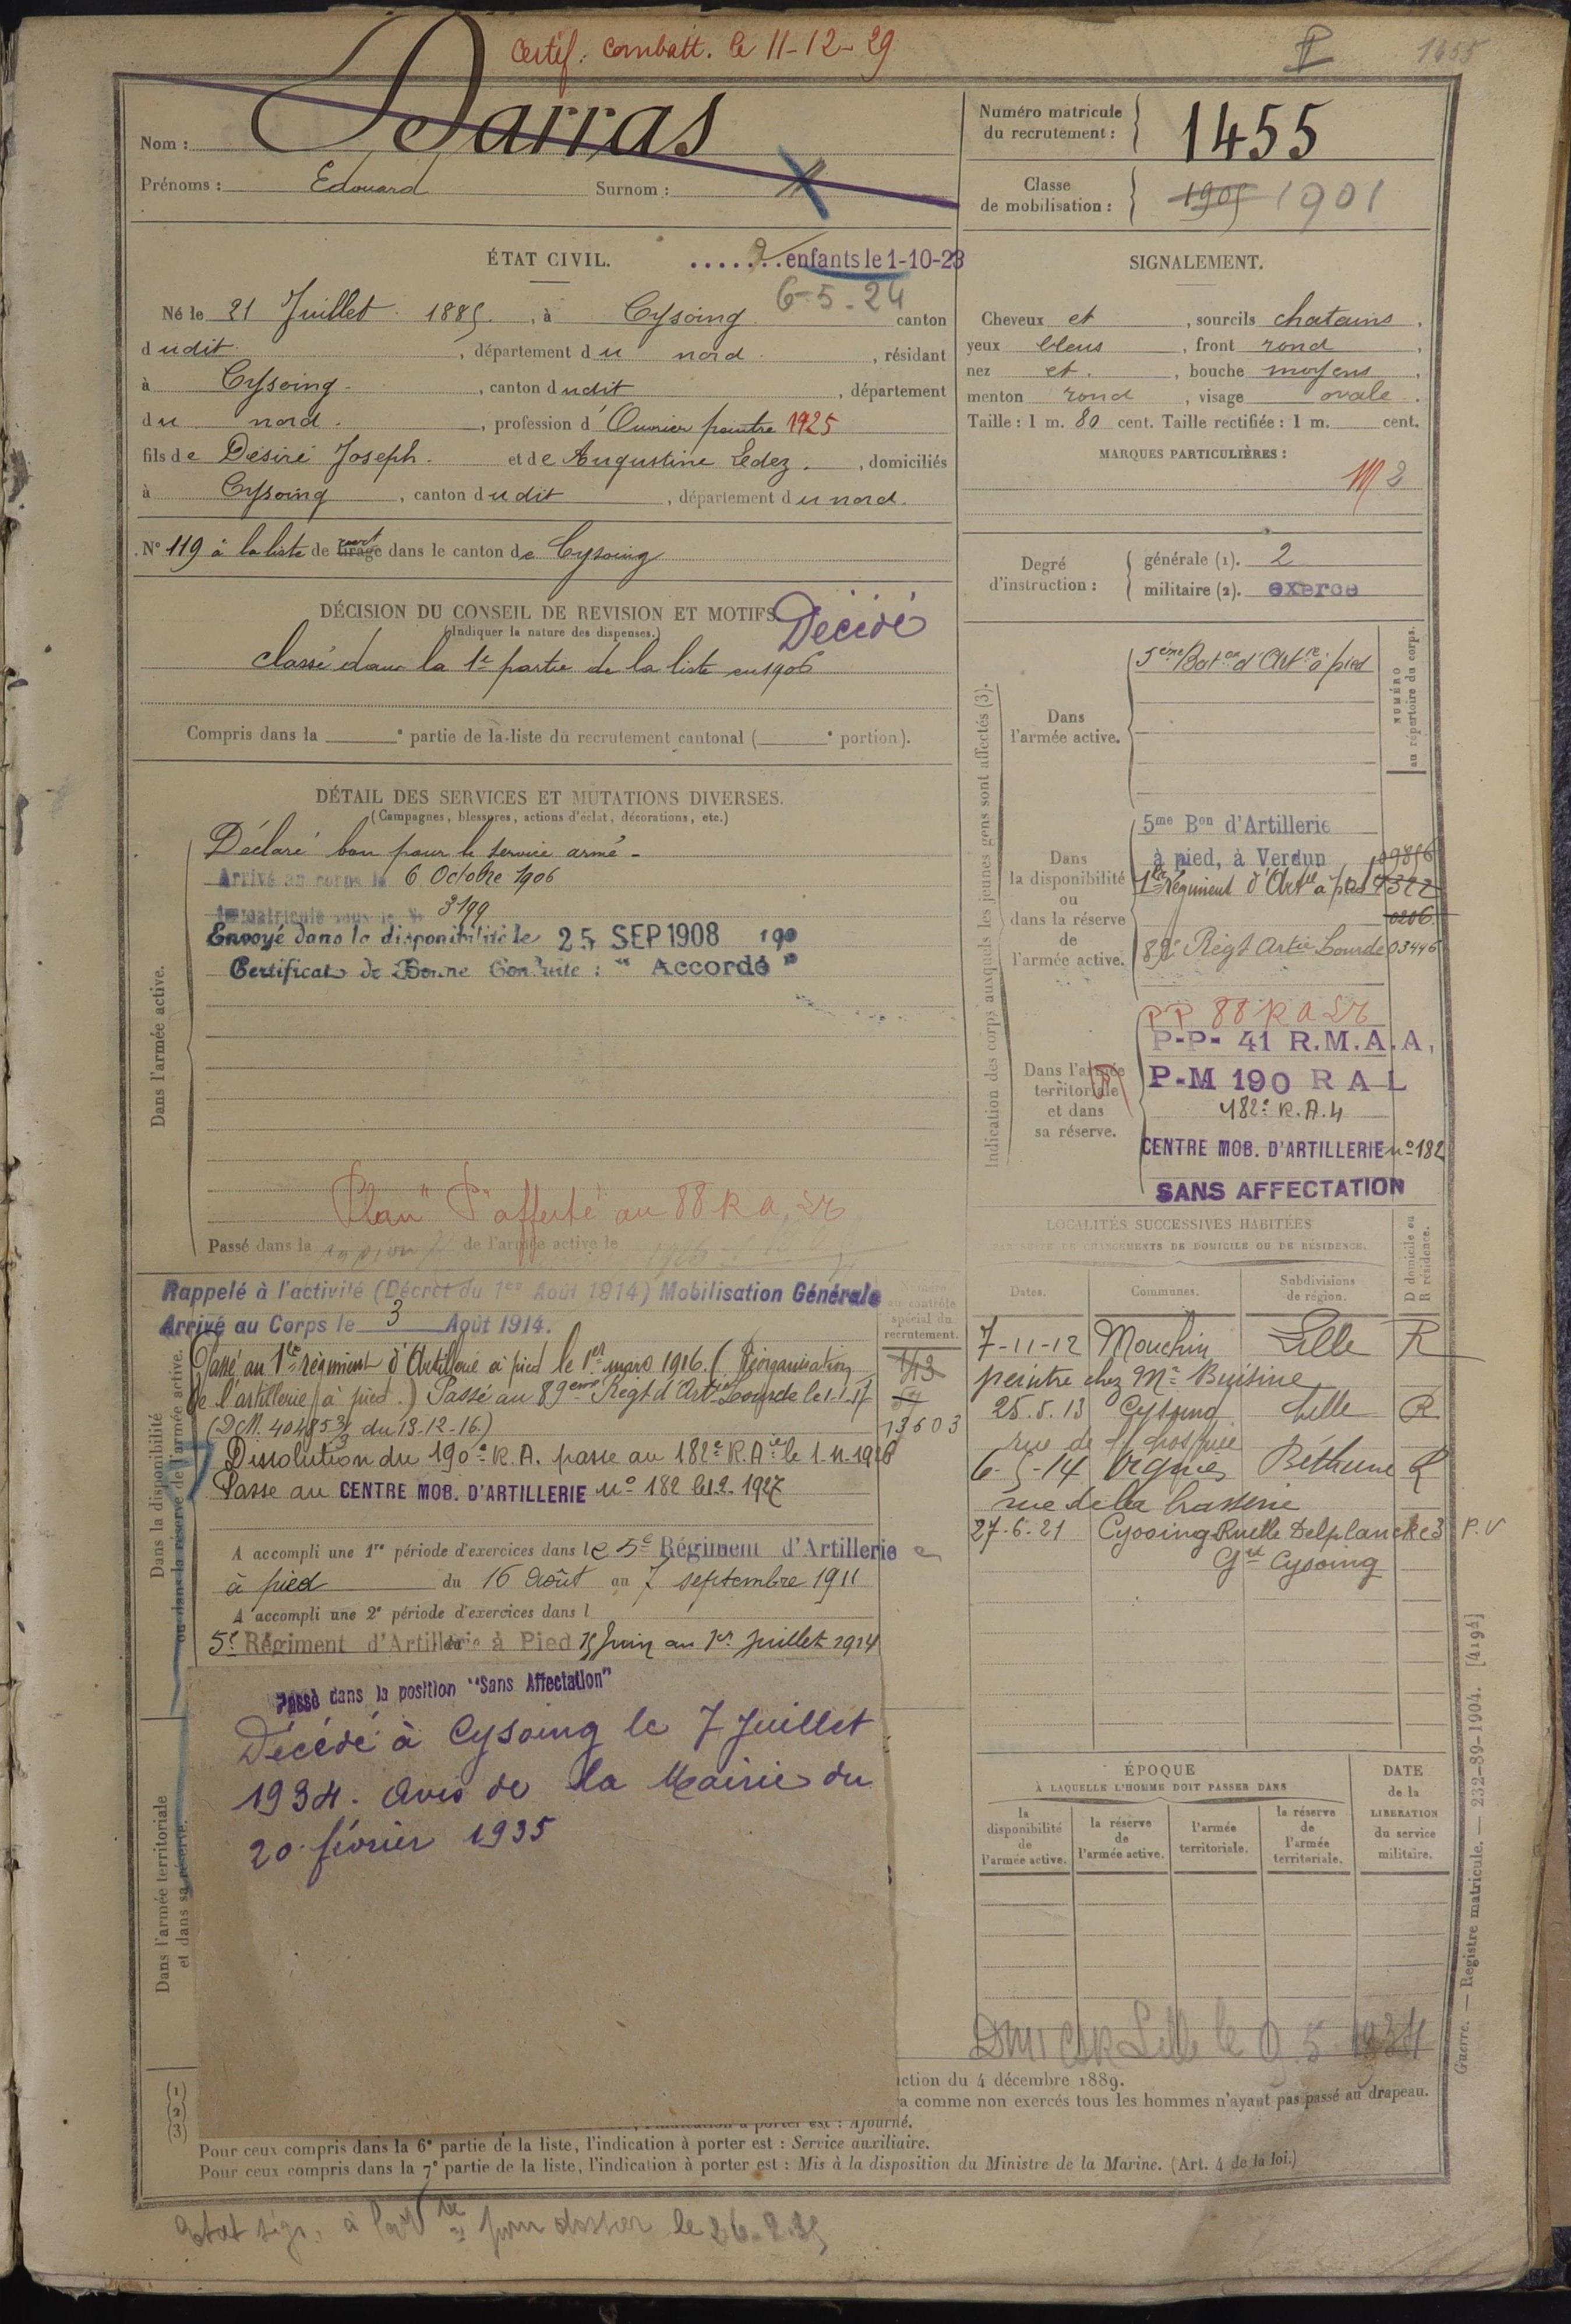 Certif. combatt. le 11-12-29
1455
Nom : Darras
Prénoms : Edouard Surnom :
Numéro matricule du recrutement : 1455
Classe de mobilisation : 1905 1901
ÉTAT CIVIL.
2 enfants le 1-10-23
6-5-24
Né le 21 Juillet 1885, à Cysoing canton
dudit, département du nord, résidant
à Cysoing, canton dudit, département
du nord, profession d'Ouvrier peintre 1925
fils de Désiré Joseph et de Augustine Ledez, domiciliés
à Cysoing, canton dudit, département du nord.
N° 119 à la liste de tirage dans le canton de Cysoing
SIGNALEMENT.
Cheveux et, sourcils chatains,
yeux bleus, front rond,
nez et, bouche moyens,
menton rond, visage ovale.
Taille : 1 m. 80 cent. Taille rectifiée : 1 m. cent.
MARQUES PARTICULIÈRES :
M 2
Degré d'instruction :
générale (1). 2
militaire (2). exercé
DÉCISION DU CONSEIL DE REVISION ET MOTIFS.
(Indiquer la nature des dispenses.)
Décédé
classé dans la 1e partie de la liste en 1906
Compris dans la e partie de la liste du recrutement cantonal ( e portion).
DÉTAIL DES SERVICES ET MUTATIONS DIVERSES.
(Campagnes, blessures, actions d'éclat, décorations, etc.)
Dans l'armée active.
Déclaré bon pour le service armé -
Arrivé au corps le 6 Octobre 1906
Immatriculé sous le N° 3199
Envoyé dans la disponibilité le 25 SEP 1908 190
Certificat de Bonne Conduite : "Accordé"
Plan "P" affecté au 88 R a Lr
Passé dans la de l'armée active le
Indication des corps auxquels les jeunes gens sont affectés (3).
NUMÉRO au répertoire du corps.
Dans l'armée active.
5ème Baton d'Artrie à pied
Dans la disponibilité ou dans la réserve de l'armée active.
5me Bon d'Artillerie
à pied, à Verdun 09856
1er Régiment d'Artie à pied
0206
89e Régt Artie Lourde 03446
Dans l'armée territoriale et dans sa réserve.
PP 88 R a Lr
P-P- 41 R.M.A.A,
P-M 190 R A L
182e R.A.4
CENTRE MOB. D'ARTILLERIE n° 182
SANS AFFECTATION
Dans la disponibilité ou dans la réserve de l'armée active.
Rappelé à l'activité (Décret du 1er Août 1914) Mobilisation Générale
Arrivé au Corps le 3 Août 1914.
Numéro au contrôle spécial du recrutement.
143
13603
Passé au 1er régiment d'Artillerie à pied le 1er mars 1916. (Réorganisation
de l'artillerie à pied.) Passé au 89eme Régt d'Artie Lourde le 1.1.17
(DM. 40485 3/3 du 13-12-16)
Dissolution du 190e R.A. passe au 182e R.A.ie le 1-11-1926
Passe au CENTRE MOB. D'ARTILLERIE n° 182 le 1.2.1927
A accompli une 1re période d'exercices dans le 5e Régiment d'Artillerie
à pied du 16 Août au 7 septembre 1911
A accompli une 2e période d'exercices dans l
5e Régiment d'Artillerie à Pied 15 Juin au 1er Juillet 1914
Dans l'armée territoriale et dans sa réserve.
Passé dans la position "Sans Affectation"
Décédé à Cysoing le 7 Juillet
1934. Avis de la Mairie du
20 février 1935
LOCALITÉS SUCCESSIVES HABITÉES
PAR SUITE DE CHANGEMENTS DE DOMICILE OU DE RÉSIDENCE.
Dates. Communes. Subdivisions de région. D domicile ou R résidence.
7-11-12 Mouchin Lille R
peintre chez Mr Buisine
25.5.13 Cysoing Lille R
rue de l'hospice
6-5-14 Oignies Béthune R
rue de la brasserie
27-6-21 Cysoing Ruelle Delplancke 3 P.V
Gd Cysoing
ÉPOQUE
À LAQUELLE L'HOMME DOIT PASSER DANS
la disponibilité de l'armée active.
la réserve de l'armée active.
l'armée territoriale.
la réserve de l'armée territoriale.
DATE de la LIBÉRATION du service militaire.
Guerre. — Registre matricule. — 232-89-1904. [4194]
(1)
(2)
(3)
ction du 4 décembre 1889.
a comme non exercés tous les hommes n'ayant pas passé au drapeau.
l'indication à porter est : Ajourné.
Pour ceux compris dans la 6e partie de la liste, l'indication à porter est : Service auxiliaire.
Pour ceux compris dans la 7e partie de la liste, l'indication à porter est : Mis à la disposition du Ministre de la Marine. (Art. 4 de la loi.)